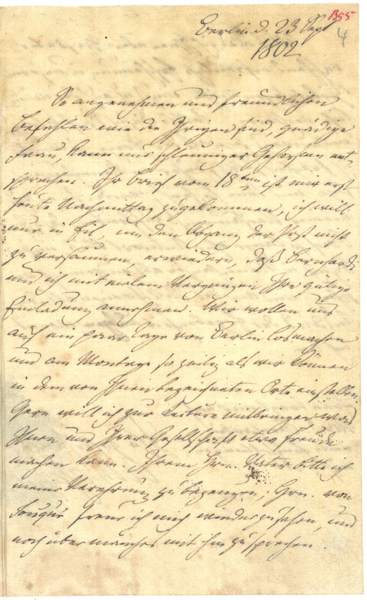 B55
4
Berlin d. 23 Sept
1802
So angenehmen und freundlichen
Befehlen wie die Ihrigen sind, gnädige
Frau, kann nur schleuniger Gehorsam ent-
sprechen. Ihr Brief vom 18ten ist mir erst
heute Nachmittag zugekommen, ich will
nur in Eil, um den Abgang der Post nicht
zu versäumen, erwiedern, daß Bernhardi
und ich mit vielem Vergnügen Ihre gütige
Einladung annehmen. Wir wollen uns
auf ein paar Tage von Berlin losmachen
und am Montage so zeitig als wir können
in dem von Ihnen bezeichneten Orte eintreffen.
Gern will ich zur Lectüre mitbringen was
Ihnen und Ihrer Gesellschaft etwa Freude
machen kann. Ihrem Hrn. Vater bitte ich
meine Verehrung zu bezeugen, Hrn. von
Fouqué freue ich mich wiederzusehen, und
noch über manches mit ihm zu sprechen.